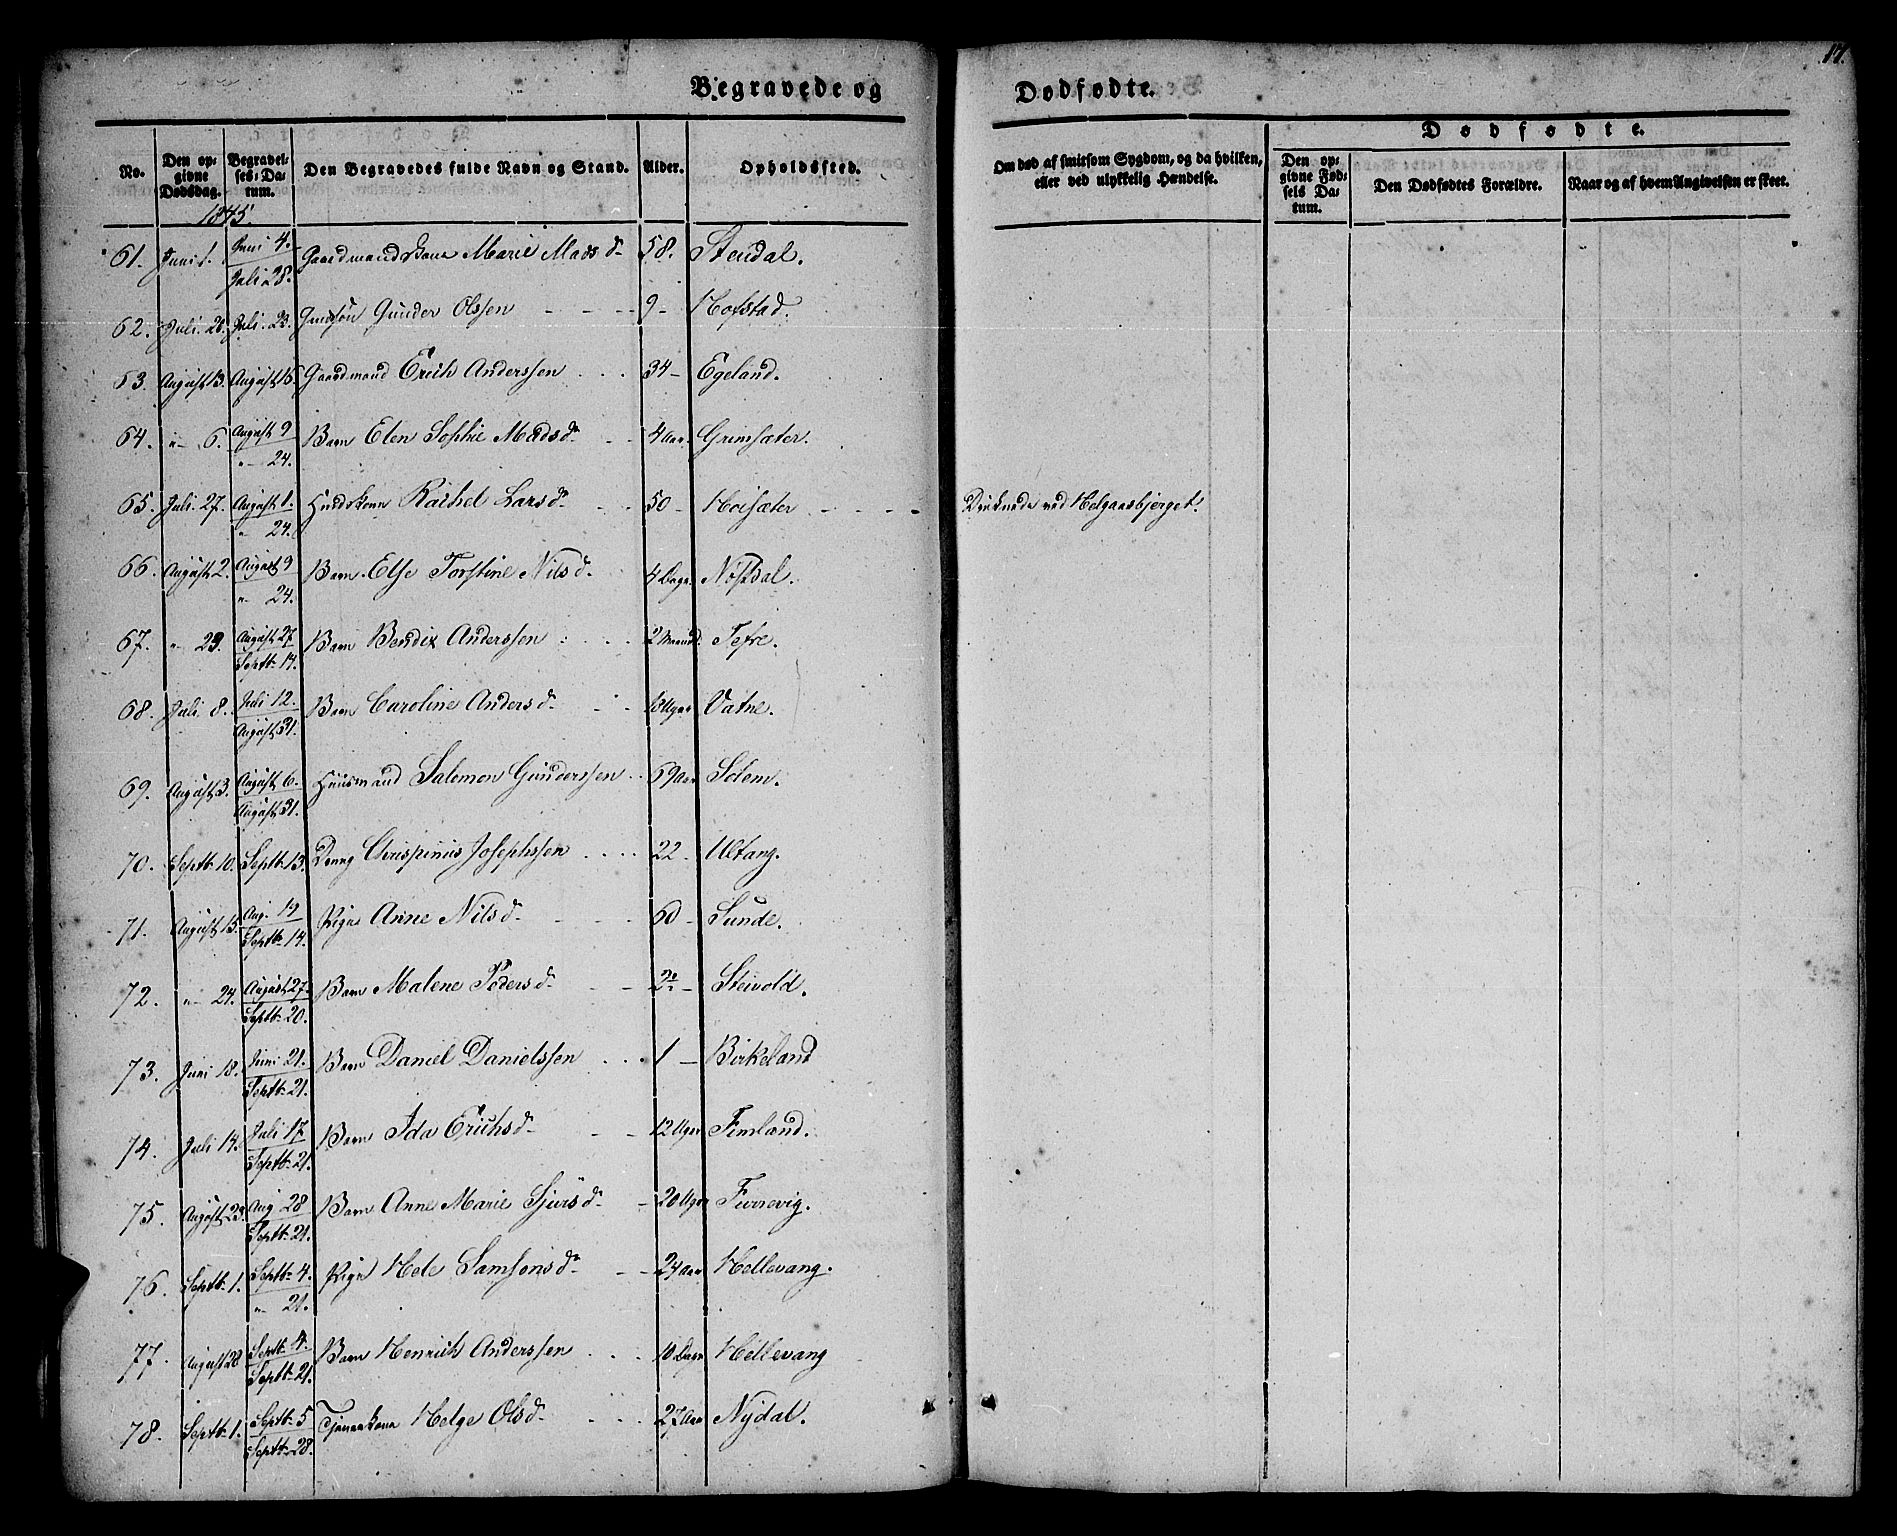 17.
Begravede og Dødfødte.
No. Den opgivne Dødsdag. Begravelses-Datum. Den Begravedes fulde Navn og Stand. Alder. Opholdssted. Om død af smitsom Sygdom, og da hvilken, eller ved ulykkelig Hændelse. Dødfødte. Den opgivne Fødsels Datum. Den Dødfødtes Forældre. Naar og af hvem Angivelsen er skeet.
1845
61. Juni 1. Juni 4. Juli 28. Gaardmandskone Marie Madsd 58. Stendal.
62. Juli 26. Juli 23. Gunder Olssen 9 - Hofstad.
63. August 13. August 15 Gaardmand Erich Anderssen 34 - Egeland.
64. " 6. August 9 " 24. Barn Elen Sophie Madsd. 4 Aar. Grimsæter.
65. Juli 27. August 1. " 24. Huuskone Rachel Larsd 50 - Høisæter - Druknede ved Helgaasbjerget.
66. August 2. August 9 " 24. Barn Else Torstine Nilsd. 4 Dage. Nøstdal.
67. " 23. August 27 Septb. 14. Barn Bendix Anderssen 2 Maand. Tefre.
68. Juli 8. Juli 12. August 31. Barn Caroline Andersd 13 Uger Vatne.
69. August 3. August 6. August 31. Huusmand Salomon Gunderssen 69 Aar Solem.
70. Septb. 10. Septb. 13. Dreng Chrispinus Josephssen 22 - Ultang.
71. August 13. Aug. 19 Septb. 14. Pige Anne Nilsd 60 - Sunde.
72. " 24. August 27. Septb. 20. Barn Malene Pedersd 2 - Steivold.
73. Juni 18. Juni 21. Septb. 21. Barn Daniel Danielssen 1 - Birkeland
74. Juli 14. Juli 17 Septb. 21. Barn Ida Erichsd 12 Uger Fimland.
75. August 23. Aug 28 Septb. 21. Barn Anne Marie Sjursd 20 Uger Furrevig.
76. Septb. 1. Septb. 4. " 21. Pige Hele Samsonsd 24 Aar Hellevang.
77. August 28 Septb. 4. Septb. 21. Barn Henrich Anderssen 10 Dage Hellevang
78. Septb. 1. Septb. 5 Septb. 28. Tjenerkone Helge Olsd 27 Aar Nydal.